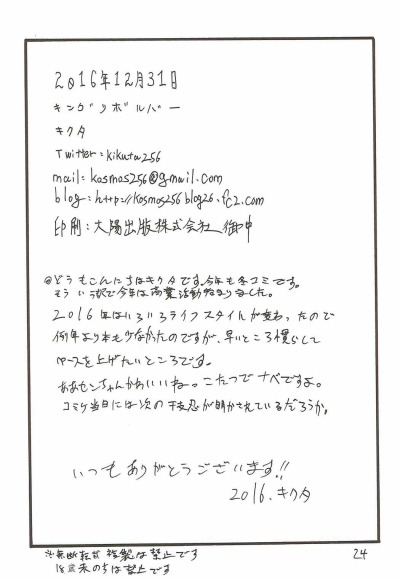 2016年12月31日
キングリボルバー
キクタ
Twitter:kikuta256
mail:kosmos256@gmail.com
blog:http://kosmos256.blog26.fc2.com
印刷:大陽出版株式会社 御中
◎どうもこんにちはキクタです。今年も冬コミです。
そういう訳で今年は商業活動始まりました。
2016年はいろいろライフスタイルが変わったので
例年より本も少なかったのですが、早いところ慣らして
ペースを上げたいところです。
ああセンちゃんかわいいね。こたつでナベですよ。
コミケ当日には次の干支忍が明かされているだろうか。
いつもありがとうございます!!
2016.キクタ
※無断転載 複製は禁止です
18歳未満の方は禁止です
24